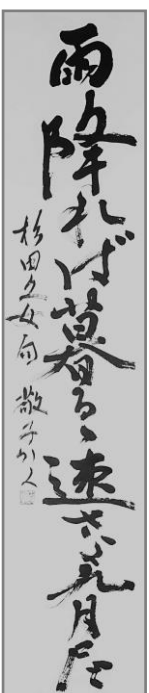 雨降れば暮るゝ速さよ九月尽
杉田久女句 敬子かく